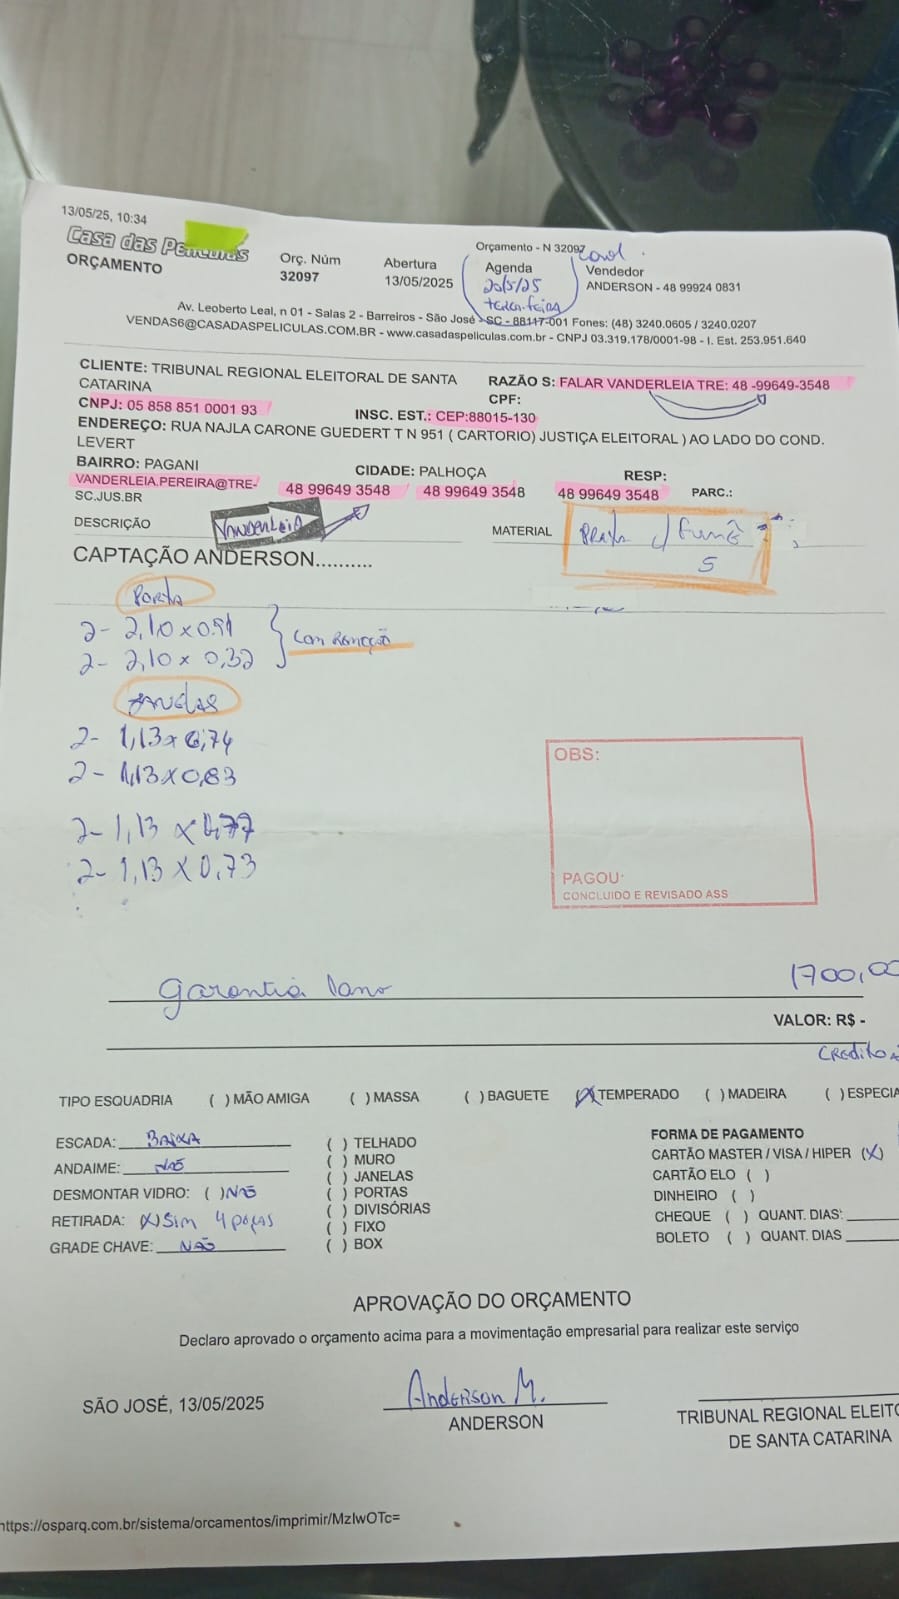 13/05/25, 10:34
Orçamento - N 32097
Casa das Películas
ORÇAMENTO
Orç. Núm
32097
Abertura
13/05/2025
Agenda
20/5/25
terça-feira
Vendedor
ANDERSON - 48 99924 0831
Av. Leoberto Leal, n 01 - Salas 2 - Barreiros - São José - SC - 88117-001 Fones: (48) 3240.0605 / 3240.0207
VENDAS6@CASADASPELICULAS.COM.BR - www.casadaspeliculas.com.br - CNPJ 03.319.178/0001-98 - I. Est. 253.951.640
CLIENTE: TRIBUNAL REGIONAL ELEITORAL DE SANTA
CATARINA
RAZÃO S: FALAR VANDERLEIA TRE: 48 -99649-3548
CPF:
CNPJ: 05 858 851 0001 93
INSC. EST.: CEP:88015-130
ENDEREÇO: RUA NAJLA CARONE GUEDERT T N 951 ( CARTORIO) JUSTIÇA ELEITORAL ) AO LADO DO COND.
LEVERT
BAIRRO: PAGANI
CIDADE: PALHOÇA
RESP:
VANDERLEIA.PEREIRA@TRE-
SC.JUS.BR
48 99649 3548
48 99649 3548
48 99649 3548
PARC.:
DESCRIÇÃO
Vanderleia
MATERIAL
Prata / Fumê
5
CAPTAÇÃO ANDERSON..........
Porta
2- 2,10 x 0,91
2- 2,10 x 0,32
Com Remoção
Janelas
2- 1,13 x 0,74
2- 1,13 x 0,83
2- 1,13 x 0,77
2- 1,13 x 0,73
OBS:
PAGOU:
CONCLUIDO E REVISADO ASS
garantia 1 ano
1700,00
VALOR: R$ -
Credito
TIPO ESQUADRIA ( ) MÃO AMIGA ( ) MASSA ( ) BAGUETE (X) TEMPERADO ( ) MADEIRA ( ) ESPECIA
ESCADA: BAIXA
ANDAIME: NÃO
DESMONTAR VIDRO: ( ) NÃO
RETIRADA: (X) Sim 4 peças
GRADE CHAVE: NÃO
( ) TELHADO
( ) MURO
( ) JANELAS
( ) PORTAS
( ) DIVISÓRIAS
( ) FIXO
( ) BOX
FORMA DE PAGAMENTO
CARTÃO MASTER / VISA / HIPER (X)
CARTÃO ELO ( )
DINHEIRO ( )
CHEQUE ( ) QUANT. DIAS:
BOLETO ( ) QUANT. DIAS
APROVAÇÃO DO ORÇAMENTO
Declaro aprovado o orçamento acima para a movimentação empresarial para realizar este serviço
SÃO JOSÉ, 13/05/2025
Anderson M.
ANDERSON
TRIBUNAL REGIONAL ELEITO
DE SANTA CATARINA
https://osparq.com.br/sistema/orcamentos/imprimir/MzIwOTc=